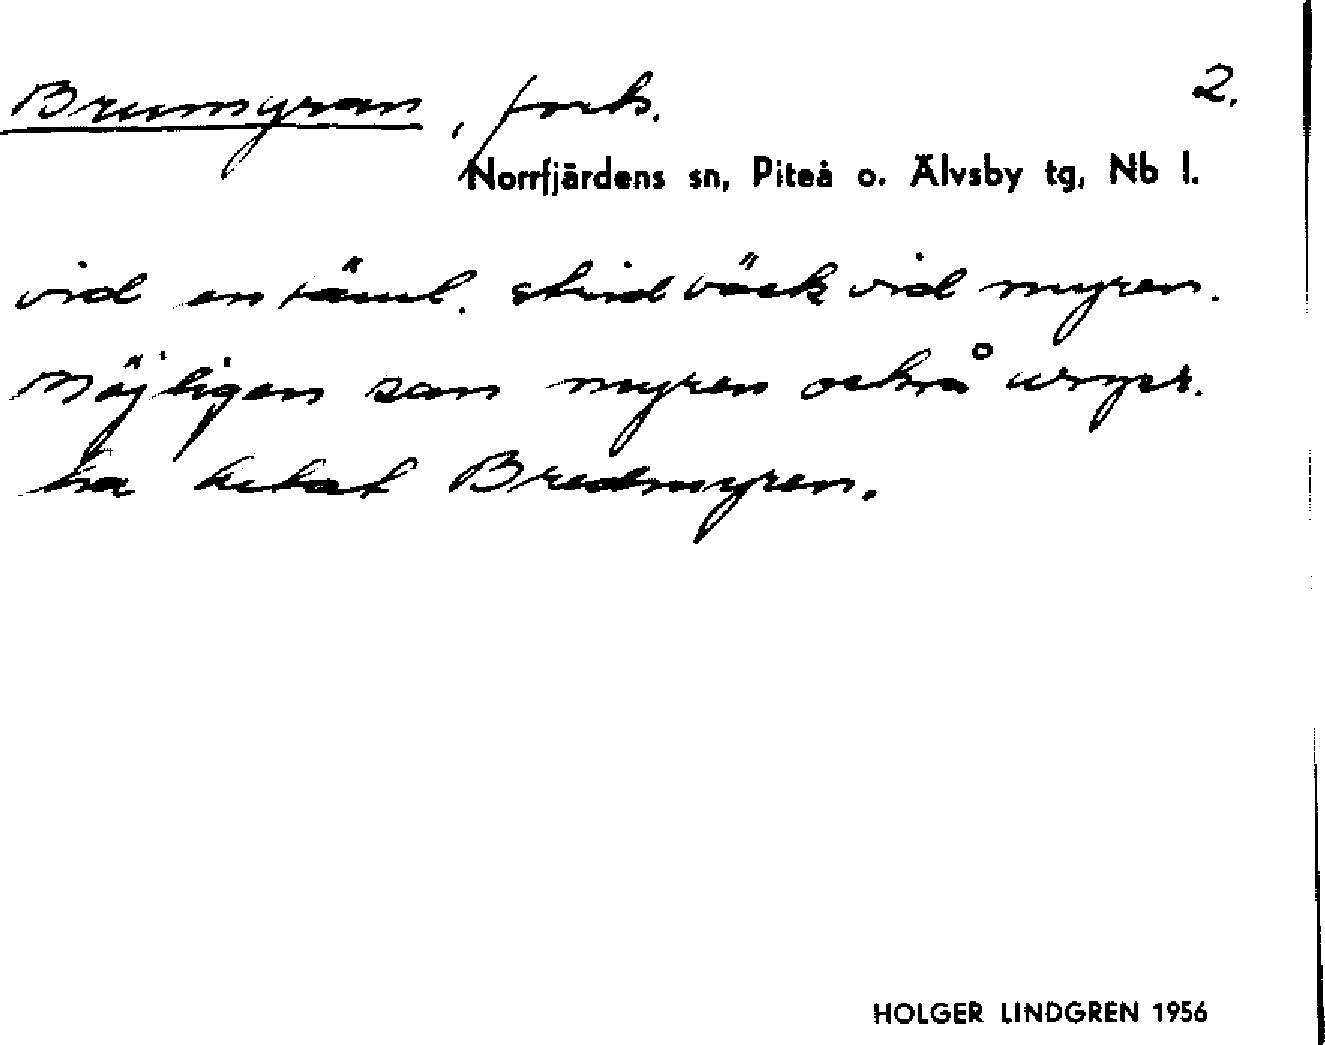 Brumyran, forts. 2.
Norrfjärdens sn, Piteå o. Älvsby tg, Nb l.
vid en täml. strid bäck vid myren.
Möjligen kan myren också urspr.
ha hetat Bredmyren.
HOLGER LINDGREN 1956